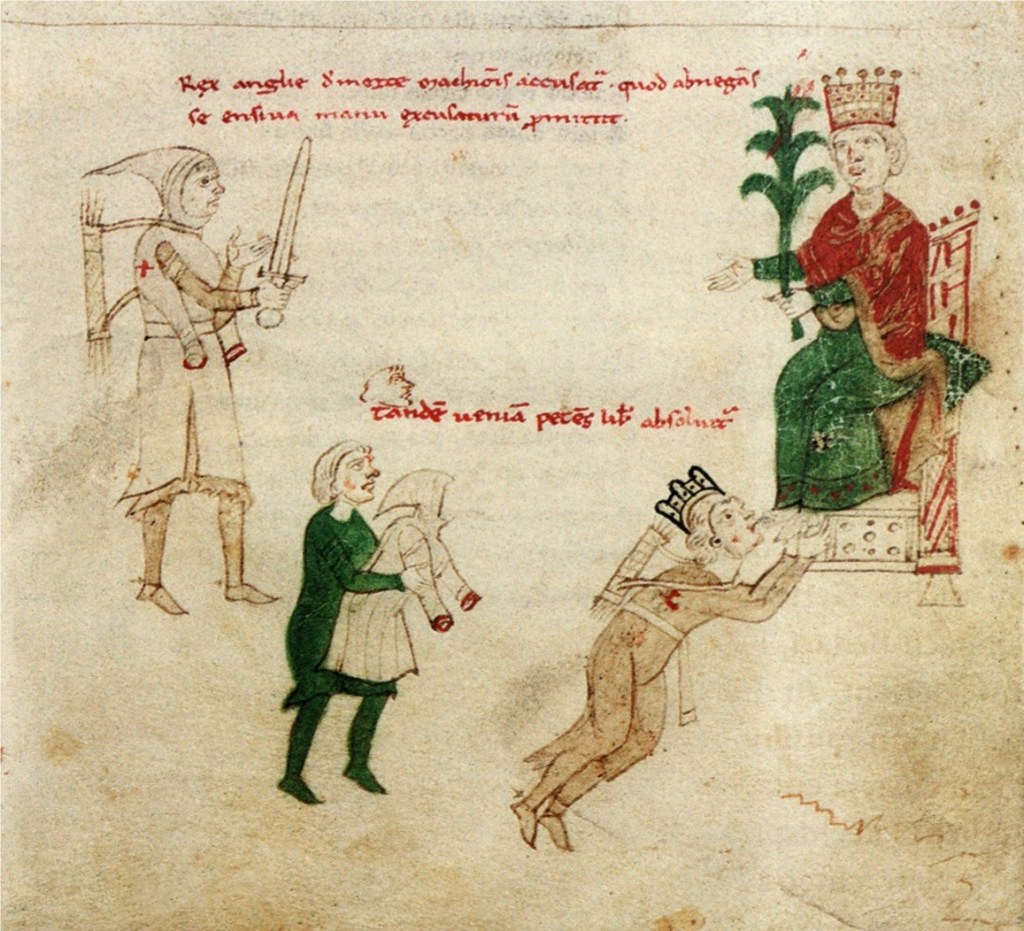 Rex anglie d̄ morte marchiōīs accusat᷑ . quod abnegās
se ensiua manu excusaturū ꝓmittit .
Tandē ueniā petēs lib̄ absoluit᷑